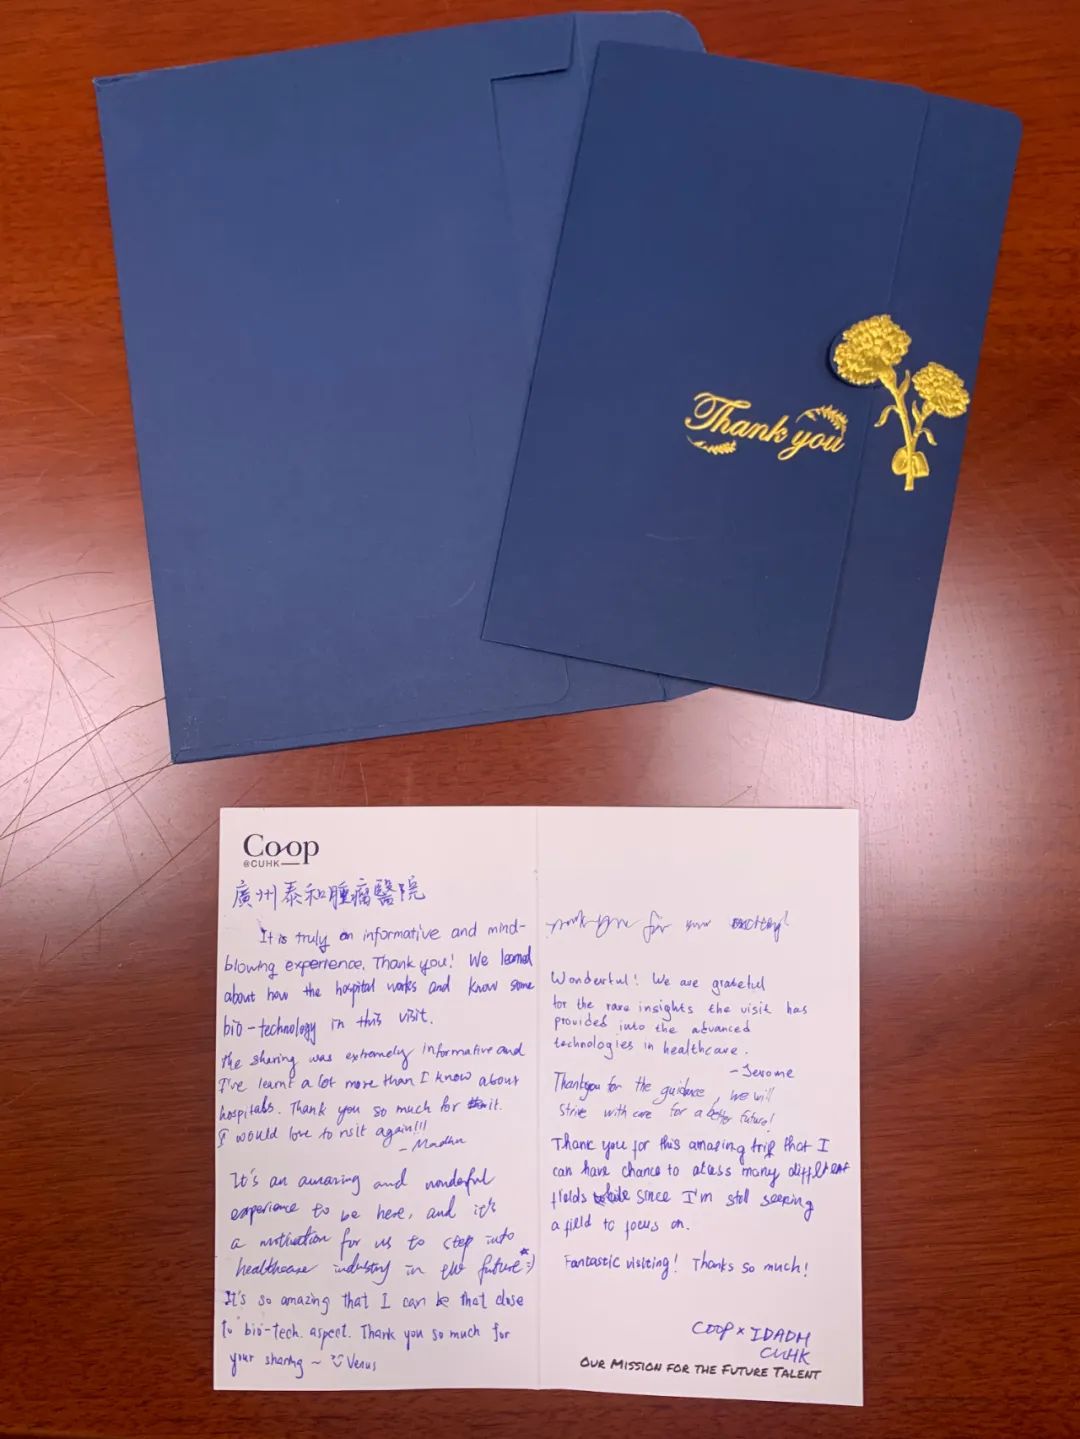 Thank you
Co-op
@CUHK
廣州泰和腫瘤醫院
It is truly an informative and mind-
blowing experience. Thank you! We learned
about how the hospital works and know some
bio-technology in this visit.
The sharing was extremely informative and
I've learnt a lot more than I know about
hospitals. Thank you so much for it.
I would love to visit again!!!
- Madhu
It's an amazing and wonderful
experience to be here, and it's
a motivation for us to step into
healthcare industry in the future :)
It's so amazing that I can be that close
to bio-tech. aspect. Thank you so much for
your sharing ~ Venus
for
Wonderful! We are grateful
for the rare insights the visit has
provided into the advanced
technologies in healthcare.
- Jerome
Thankyou for the guidance, we will
strive with care for a better future!
Thank you for this amazing trip that I
can have chance to atcess many different
fields since I'm still seeking
a field to focus on.
Fantastic visiting! Thanks so much!
COOP × IDADM
CUHK
OUR MISSION FOR THE FUTURE TALENT